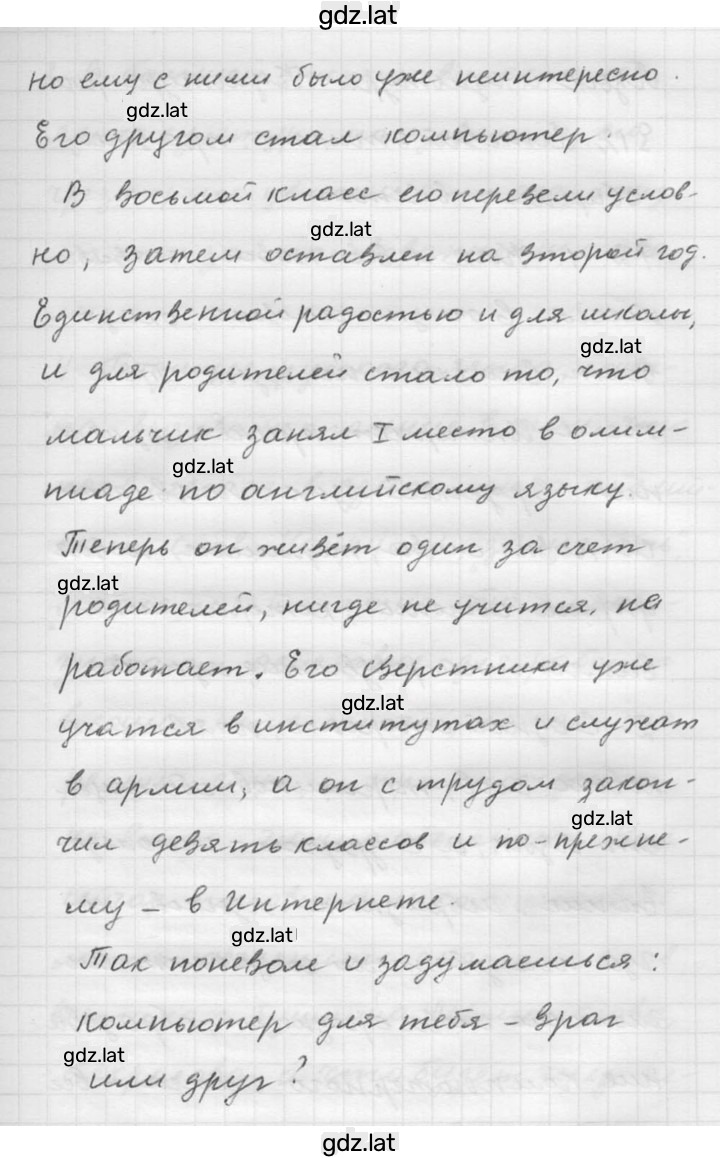 gdz.lat
но ему с ними было уже неинтересно.
gdz.lat
Его другом стал компьютер.
В восьмой класс его перевели услов-
gdz.lat
но, затем оставлен на второй год.
Единственной радостью и для школы,
gdz.lat
и для родителей стало то, что
мальчик занял I место в олим-
gdz.lat
пиаде по английскому языку.
Теперь он живёт один за счет
gdz.lat
родителей, нигде не учится, на
работает. Его сверстники уже
gdz.lat
учатся в институтах и служат
в армии, а он с трудом закон-
gdz.lat
чил девять классов и по-прежне-
му – в Интернете.
gdz.lat
Так поневоле и задумаешься:
компьютер для тебя – враг
gdz.lat
или друг?
gdz.lat